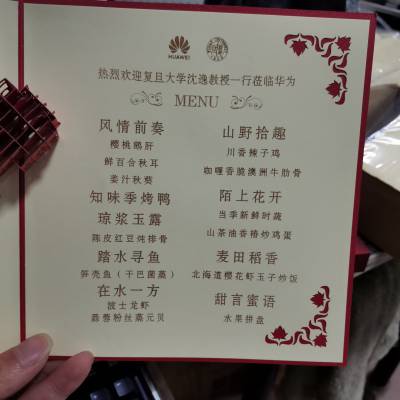 HUAWEI
热烈欢迎复旦大学沈逸教授一行莅临华为
MENU
风情前奏
樱桃鹅肝
鲜百合秋耳
姜汁秋葵
知味季烤鸭
琼浆玉露
陈皮红豆炖排骨
踏水寻鱼
笋壳鱼（干巴菌蒸）
在水一方
波士龙虾
蒜蓉粉丝蒸元贝
山野拾趣
川香辣子鸡
咖喱香脆澳洲牛肋骨
陌上花开
当季新鲜时蔬
山茶油香椿炒鸡蛋
麦田稻香
北海道樱花虾玉子炒饭
甜言蜜语
水果拼盘